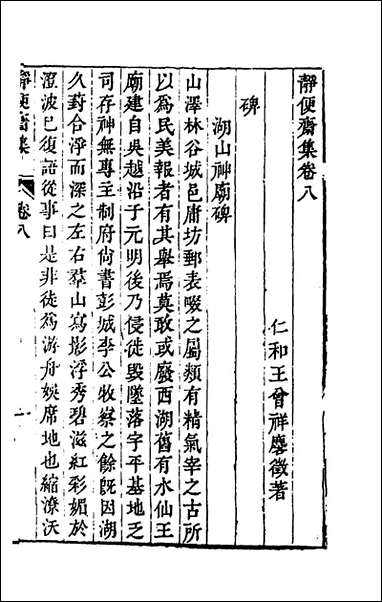 靜便齋集卷八
仁和王曾祥麐徵著
碑
湖山神廟碑
山澤林谷城邑庸坊郵表畷之屬類有精氣宰之古所
以爲民美報者有其舉焉莫敢或廢西湖舊有水仙王
廟建自吳越沿于元明後乃侵徙毀墜落字平基地乏
司存神無專主制府尚書彭城李公牧察之餘旣因湖
久葑合浮而深之左右羣山寫影浮秀碧滋紅彩媚於
澄波已復語從事曰是非徒爲游舟娛席地也縮潦沃
靜便齋集
卷八
一